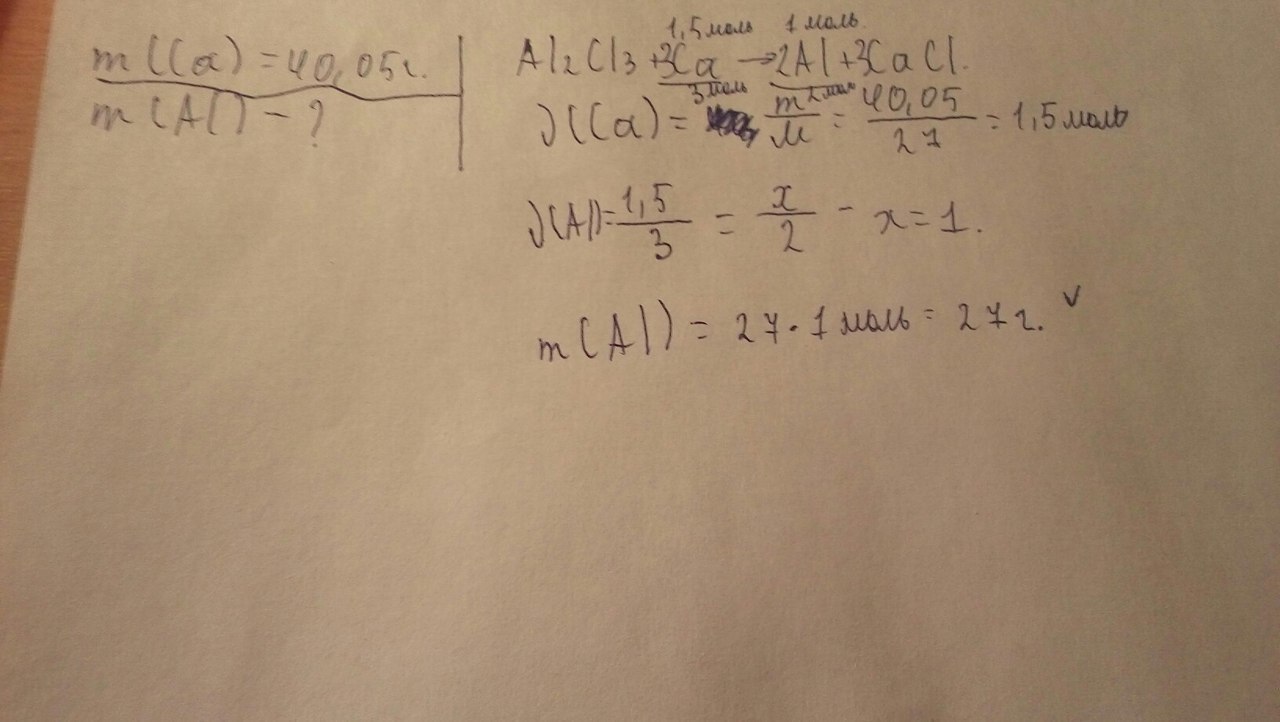 m(Ca) = 40,05г.
m(Al) - ?
1,5 моль 1 моль.
Al2Cl3 + 3Ca → 2Al + 3CaCl.
3 моль 2 моль
ν(Ca) = m/M = 40,05/27 = 1,5 моль
ν(Al) = 1,5/3 = x/2 - x = 1.
m(Al) = 27 · 1 моль = 27 г. v